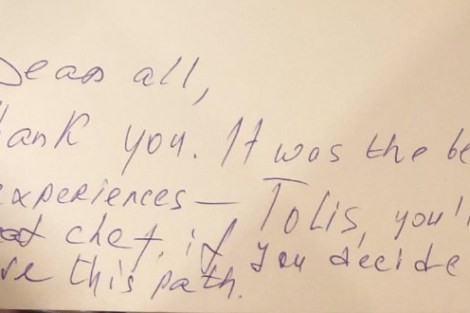 Dear all,
hank you. It was the be
experiences — Tolis, you'
chef, if you decide
this path.